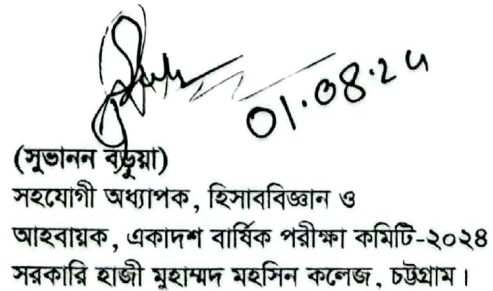 01.08.24
(সুভানন বড়ুয়া)
সহযোগী অধ্যাপক, হিসাববিজ্ঞান ও
আহবায়ক, একাদশ বার্ষিক পরীক্ষা কমিটি-২০২৪
সরকারি হাজী মুহাম্মদ মহসিন কলেজ, চট্টগ্রাম।